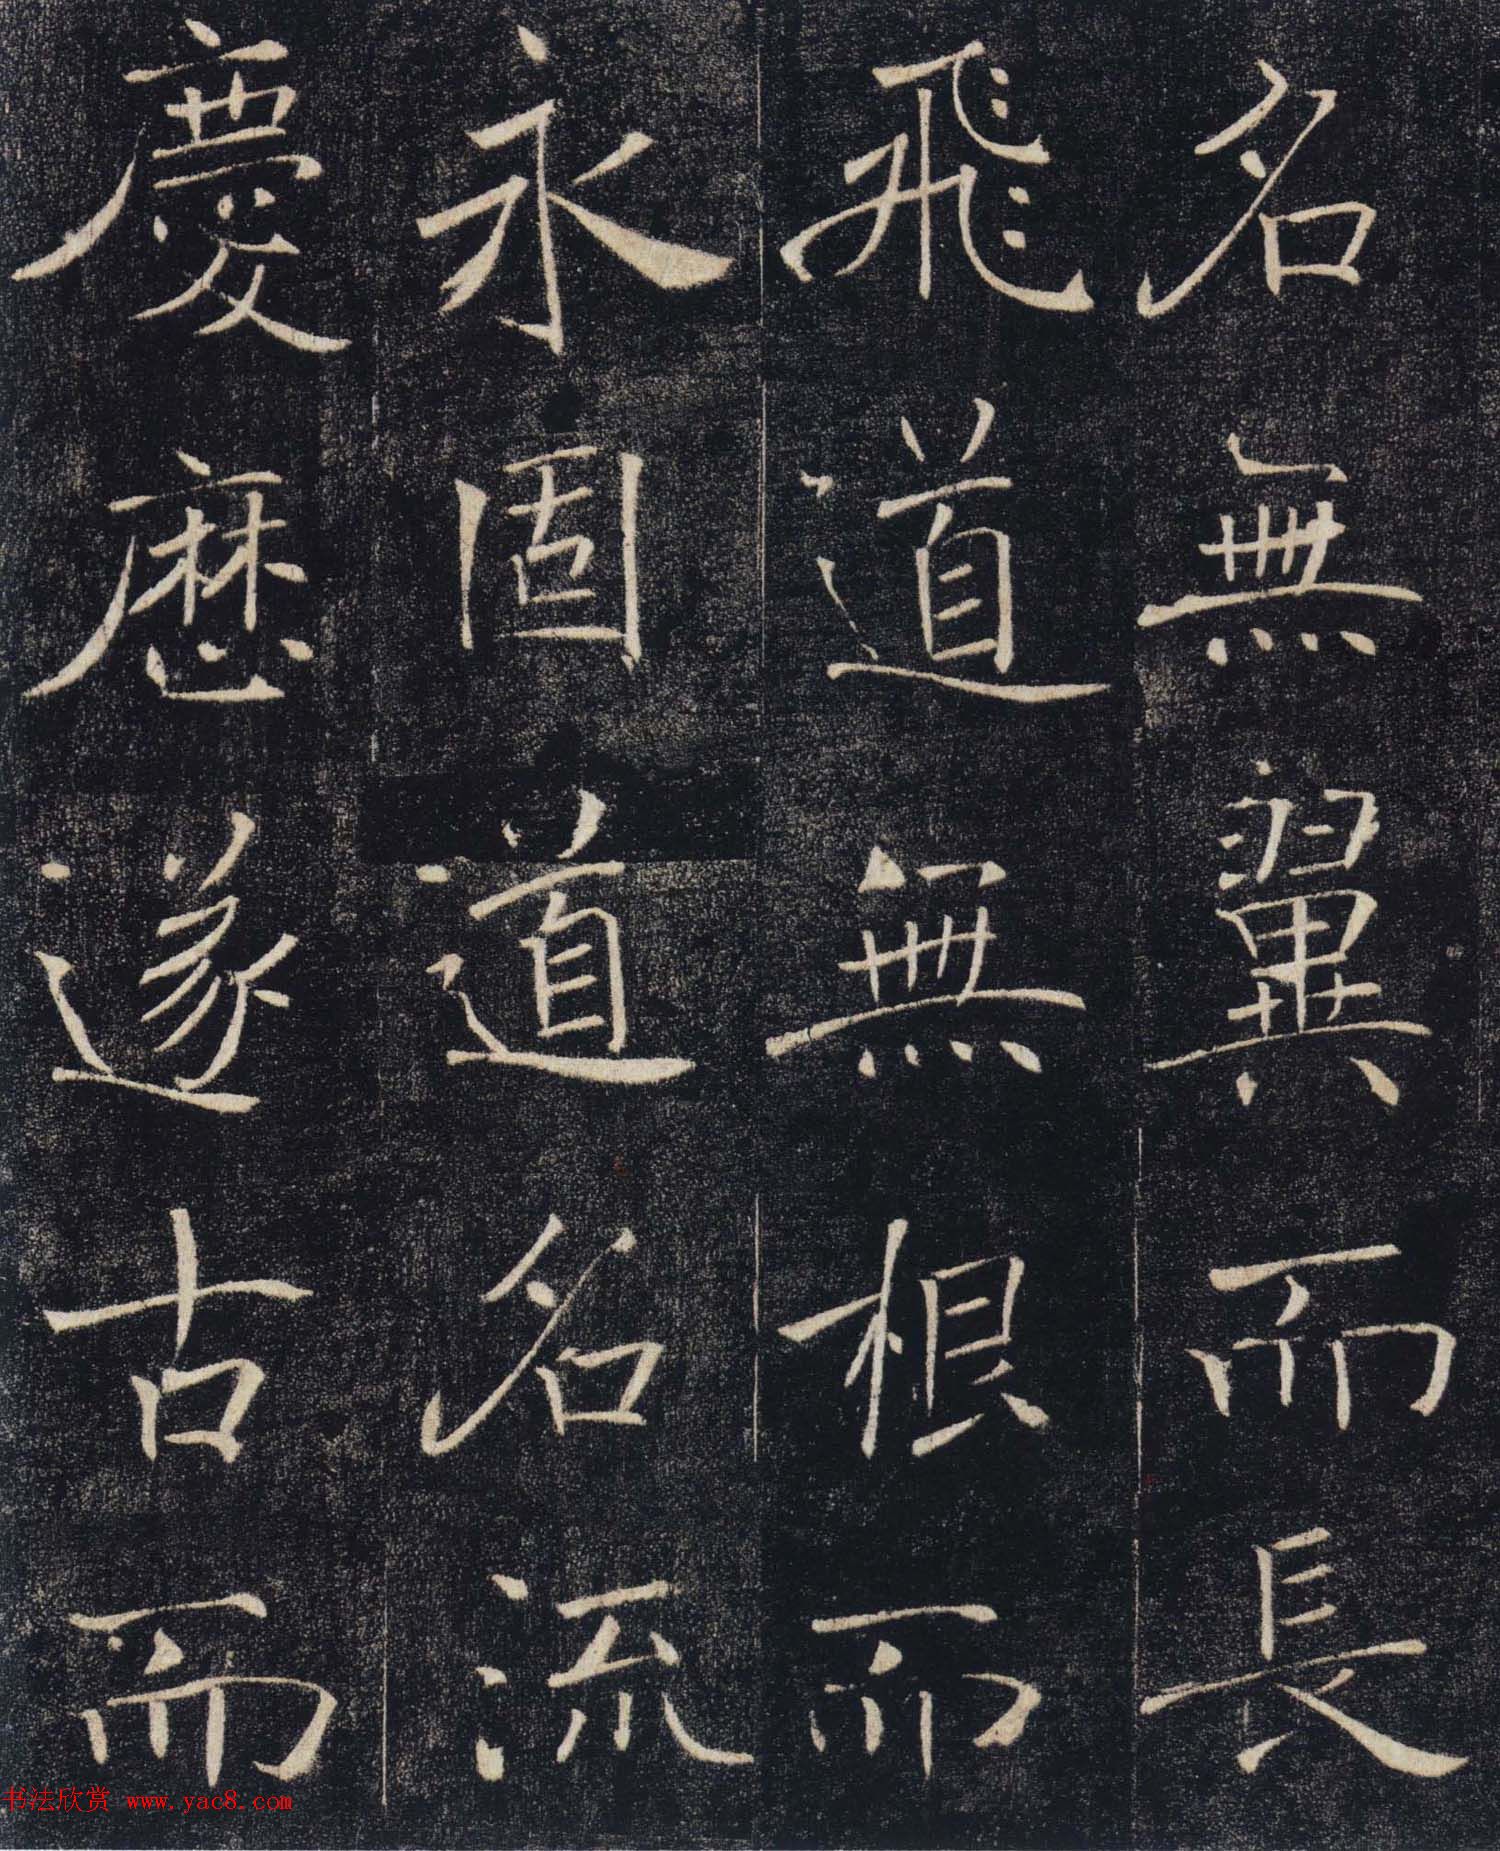 名無翼而長
飛道無根而
永固道名流
慶歷遂古而
书法欣赏 www.yac8.com